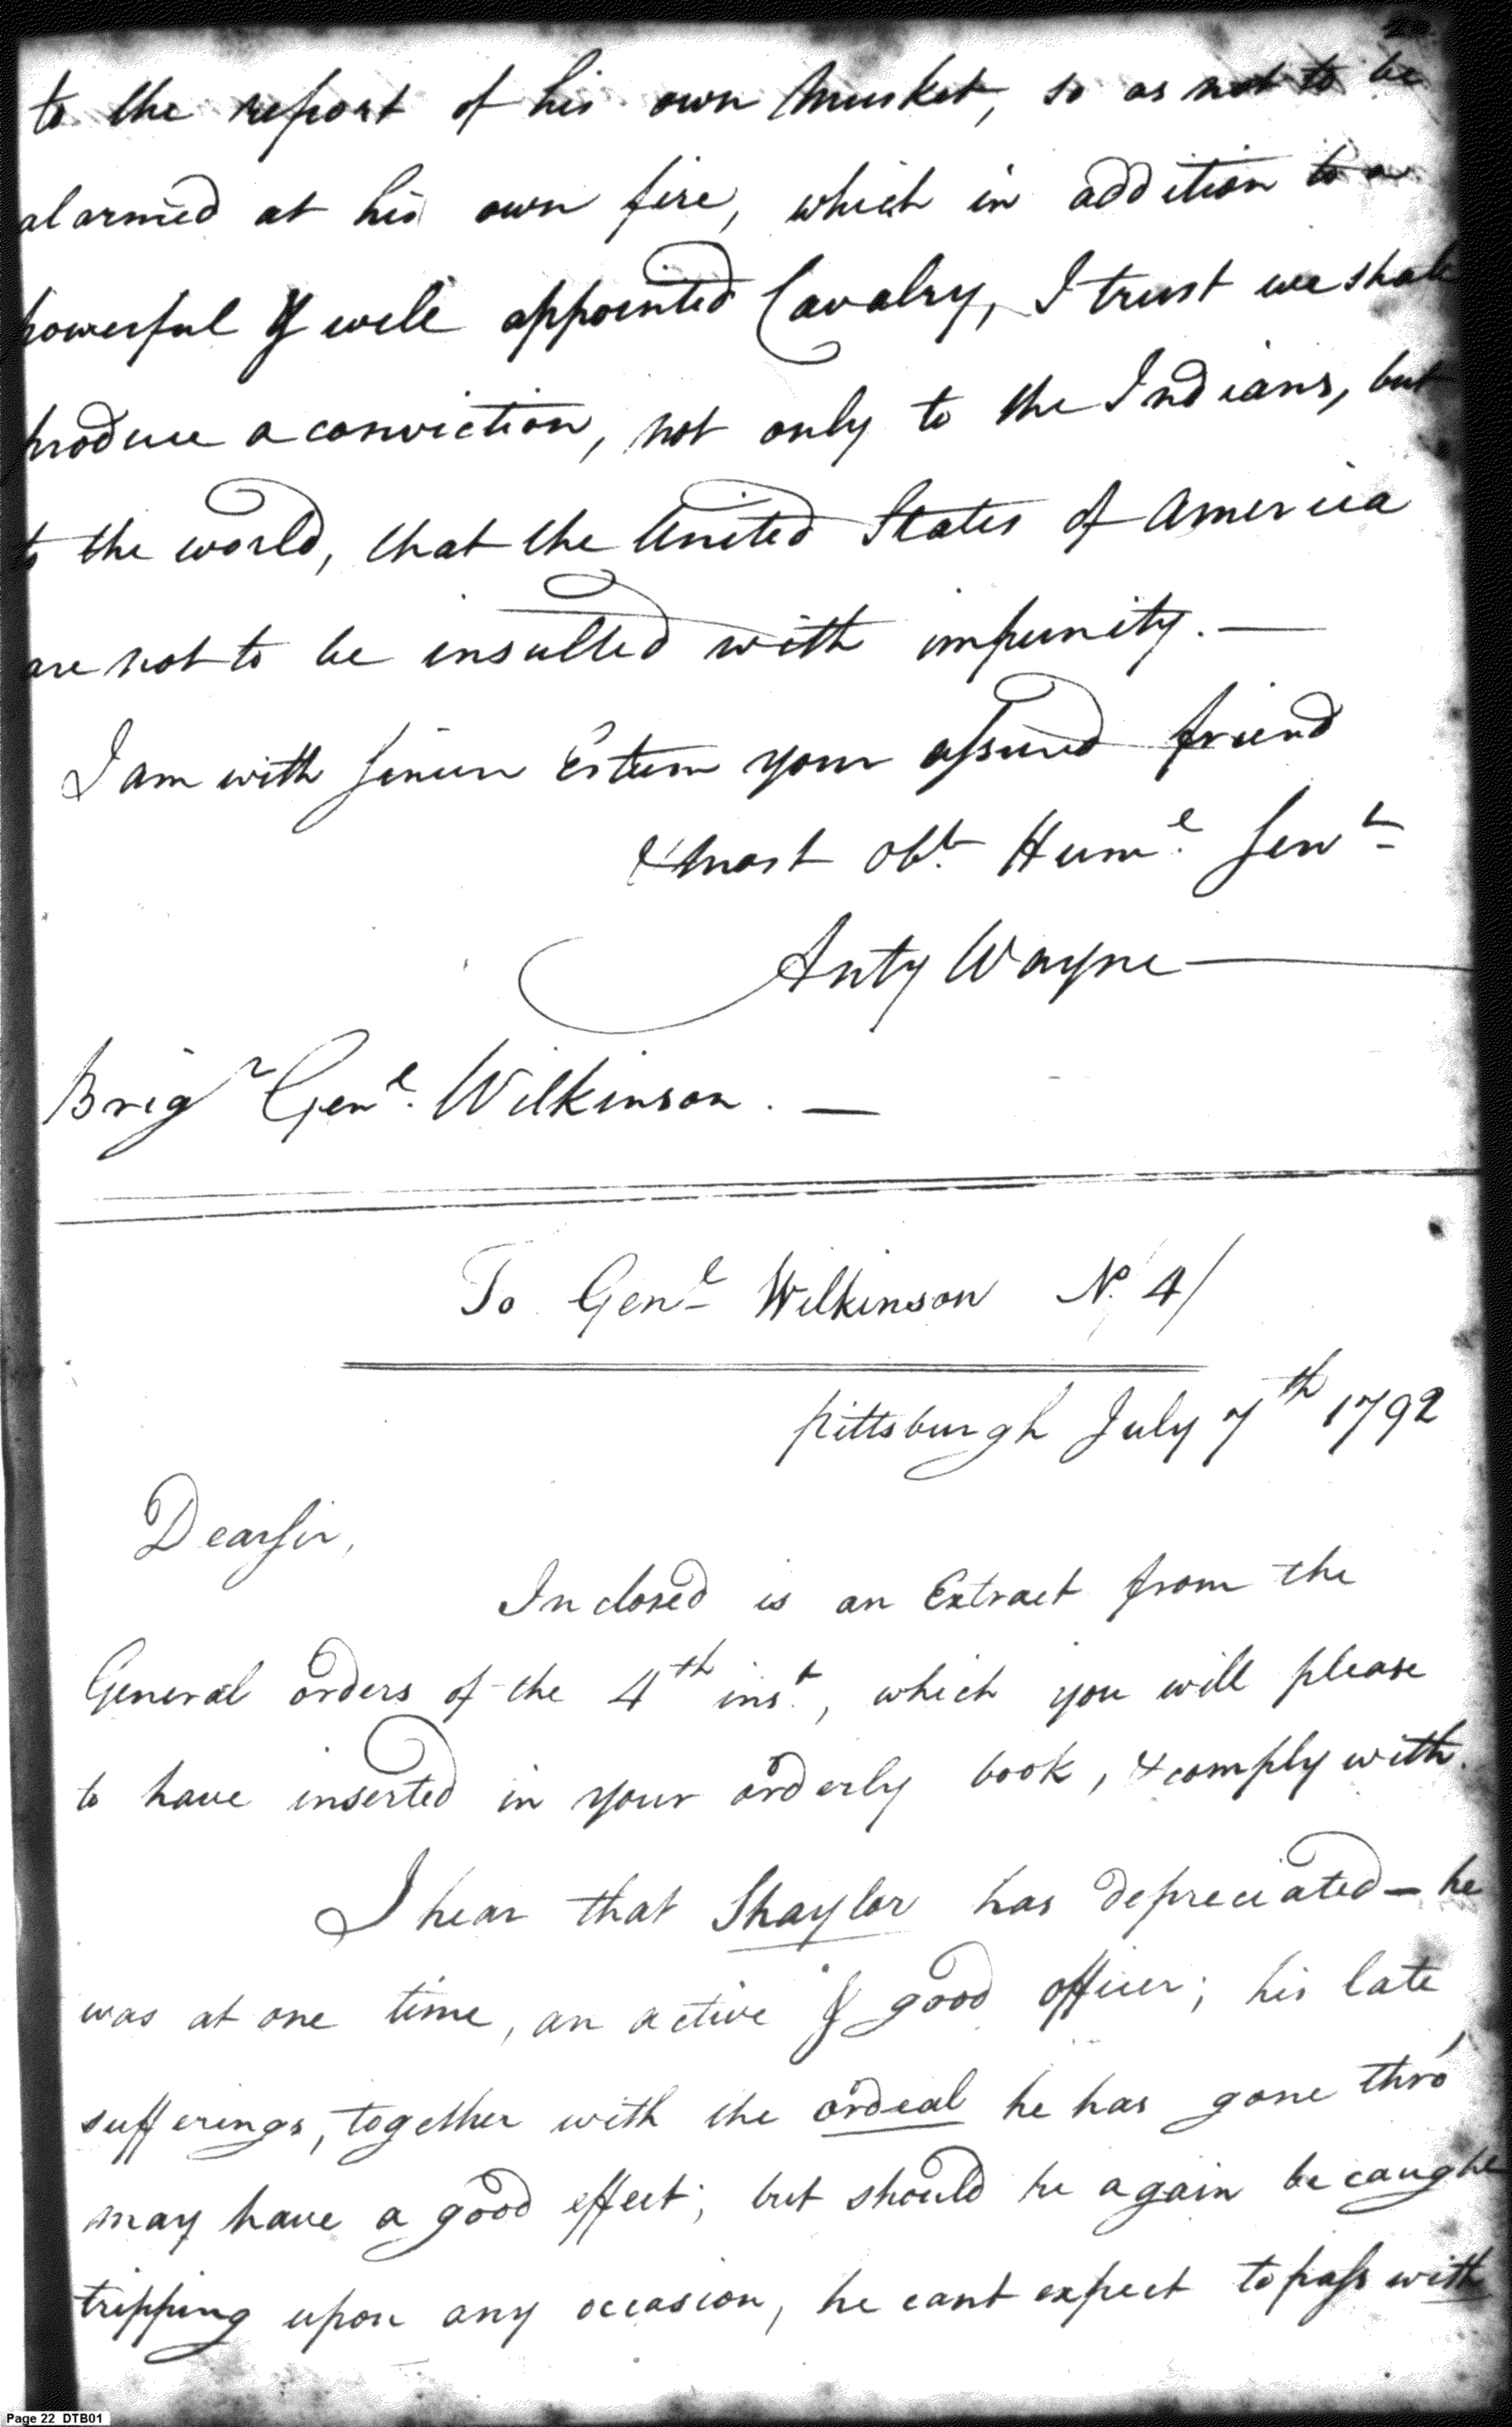 to the report of his own Musket, so as not to be
alarmed at his own fire, which in addition to a
powerful & well appointed Cavalry, I trust we shall
produce a conviction, not only to the Indians, but
to the world, that the United States of America
are not to be insulted with impunity. —
I am with sincere Esteem your assured friend
& most Obt. Humle. Servt
Anty Wayne
Brigr Genl. Wilkinson. —
To Genl Wilkinson No. 4/
Pittsburgh July 7th 1792
Dear Sir,
Inclosed is an Extract from the
General orders of the 4th inst., which you will please
to have inserted in your orderly book, & comply with.
I hear that Shaylor has depreciated — he
was at one time, an active & good officer; his late
sufferings, together with the ordeal he has gone thro'
may have a good effect; but should he again be caught
tripping upon any occasion, he cant expect to pass with
Page 22 DTB01